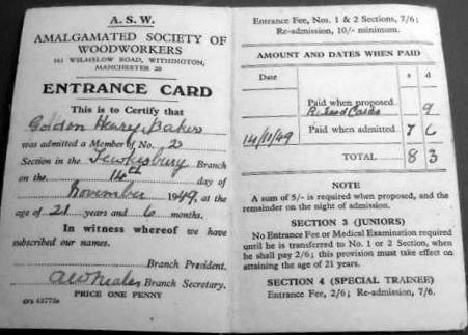 A. S. W.
AMALGAMATED SOCIETY OF
WOODWORKERS
WILMSLOW ROAD, WITHINGTON,
MANCHESTER 20
ENTRANCE CARD
This is to Certify that
Golden Henry Baker
was admitted a Member of No. 2
Section in the Tewkesbury Branch
on the 14th day of
November 1949, at the
age of 21 years and 6 months.
In witness whereof we have
subscribed our names.
Branch President.
Branch Secretary.
PRICE ONE PENNY
Entrance Fee, Nos. 1 & 2 Sections, 7/6;
Re-admission, 10/- minimum.
AMOUNT AND DATES WHEN PAID
Date s d
Paid when proposed
Cards 9
14/11/49 Paid when admitted 7 6
TOTAL 8 3
NOTE
A sum of 5/- is required when proposed, and the
remainder on the night of admission.
SECTION 3 (JUNIORS)
No Entrance Fee or Medical Examination required
until he is transferred to No. 1 or 2 Section, when
he shall pay 2/6; this provision must take effect on
attaining the age of 21 years.
SECTION 4 (SPECIAL TRAINEE)
Entrance Fee, 2/6; Re-admission, 7/6.